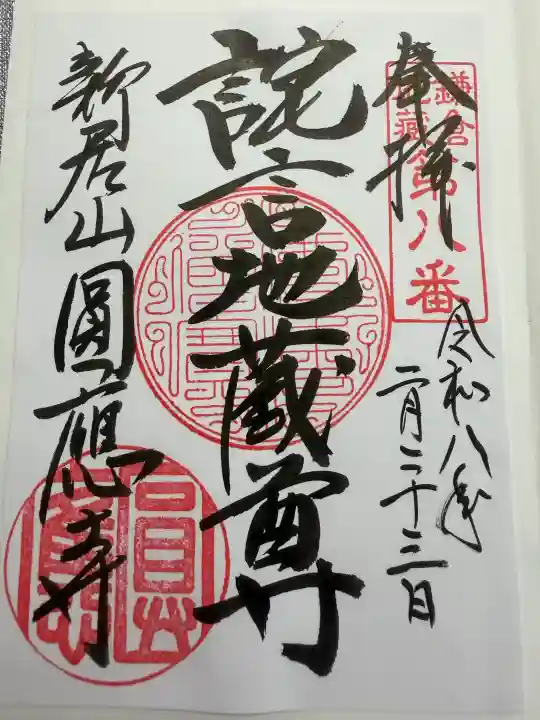 登拝
鎌倉
地蔵第八番
令和八年
二月二十三日
詫言地蔵尊
新居山圓應寺